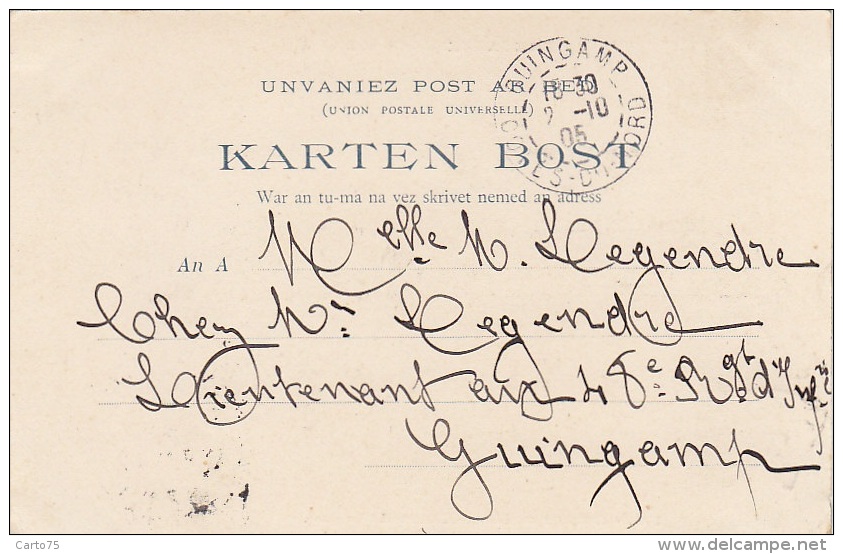 UNVANIEZ POST AR BED
(UNION POSTALE UNIVERSELLE)
KARTEN BOST
War an tu-ma na vez skrivet nemed an adress
GUINGAMP
18 30
2 -10
05
COTES-DU-NORD
An A
Melle M. Legendre
Chez Mr. Legendre
Lieutenant au 48e. Rgt. d'Infrie
Guingamp
Carto75
www.delcampe.net